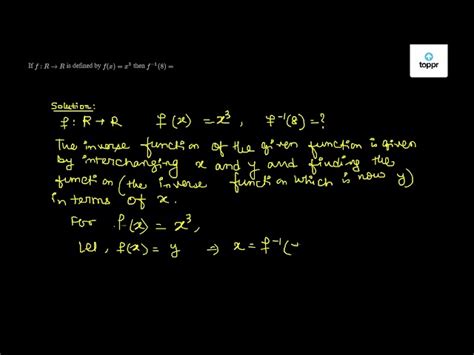 If f : R → R is defined by f(x) = x³ then f⁻¹(8) =
toppr
Solution:
f: R → R f(x) = x³, f⁻¹(8) = ?
The inverse function of the given function is given
by interchanging x and y and finding the
function (the inverse function which is now y)
in terms of x.
For f(x) = x³,
Let, f(x) = y ⇒ x = f⁻¹(